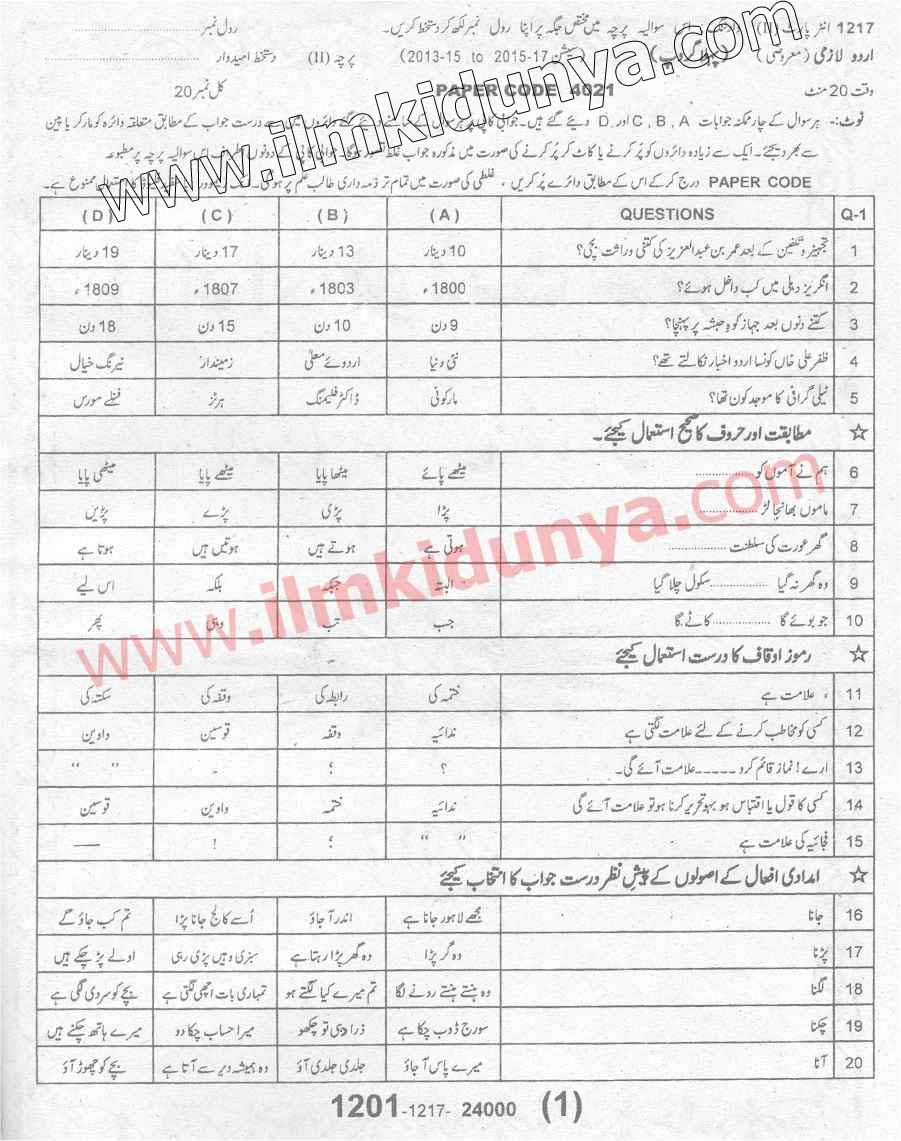 1217 انٹر پارٹ (II) اس سوالیہ پرچہ میں مختص جگہ پر اپنا رول نمبر لکھ کر دستخط کریں۔ رول نمبر
اردو لازمی (معروضی) (پہلا گروپ) (سیشن 17-2015 to 2013-15) پرچہ (II) دستخط امیدوار
وقت 20 منٹ PAPER CODE 4021 کل نمبر 20
نوٹ:- ہر سوال کے چار ممکنہ جوابات C , B , A اور D دیئے گئے ہیں۔ جوابی کاپی پر ہر سوال کے سامنے دیئے گئے دائروں میں سے درست جواب کے مطابق متعلقہ دائرہ کو مارکر یا پین
سے بھر دیجئے۔ ایک سے زیادہ دائروں کو پُر کرنے یا کاٹ کر پُر کرنے کی صورت میں مذکورہ جواب غلط تصور ہوگا۔ جوابی کاپی کے دونوں اس سوالیہ پرچہ پر مطبوعہ
PAPER CODE درج کر کے اس کے مطابق دائرے پُر کریں ، غلطی کی صورت میں تمام تر ذمہ داری طالب علم پر ہوگی۔ ممنوع ہے۔
Q-1 QUESTIONS (A) (B) (C) (D)
1 تجہیز و تکفین کے بعد عمر بن عبدالعزیز کی کتنی وراثت بچی؟ 10 دینار 13 دینار 17 دینار 19 دینار
2 انگریز دہلی میں کب داخل ہوئے؟ 1800ء 1803ء 1807ء 1809ء
3 کتنے دنوں بعد جہاز کوہِ حبشہ پر پہنچا؟ 9 دن 10 دن 15 دن 18 دن
4 ظفر علی خاں کونسا اردو اخبار نکالتے تھے؟ نئی دنیا اردوئے معلیٰ زمیندار نیرنگ خیال
5 ٹیلی گرافی کا موجد کون تھا؟ مارکونی ڈاکٹر فلیمنگ ہرٹز فنلے مورس
☆ مطابقت اور حروف کا صحیح استعمال کیجئے۔
6 ہم نے آموں کو .............. میٹھے پائے میٹھا پایا میٹھے پایا میٹھی پایا
7 ماموں بھانجا لڑ .............. پڑا پڑی پڑے پڑیں
8 گھر عورت کی سلطنت .............. ہوتی ہے ہوتے ہیں ہوتیں ہیں ہوتا ہے
9 وہ گھر نہ گیا .............. سکول چلا گیا البتہ جبکہ بلکہ اس لیے
10 جو بوئے گا .............. کاٹے گا جب تب وہی پھر
☆ رموز اوقاف کا درست استعمال کیجئے
11 ، علامت ہے ختمہ کی رابطہ کی وقفہ کی سکتہ کی
12 کسی کو مخاطب کرنے کے لئے علامت لگتی ہے ندائیہ وقفہ قوسین واوین
13 ارے! نماز قائم کرو ----- علامت آئے گی۔ ؟ ؛ ۔ " "
14 کسی کا قول یا اقتباس ہو بہو تحریر کرنا ہو تو علامت آئے گی ندائیہ ختمہ واوین قوسین
15 فجائیہ کی علامت ہے " " ؛ ! —
☆ امدادی افعال کے اصولوں کے پیشِ نظر درست جواب کا انتخاب کیجئے
16 جانا مجھے لاہور جانا ہے اندر آ جاؤ اُسے کالج جانا پڑا تم کب جاؤ گے
17 پڑنا وہ گر پڑا وہ گھر پڑا رہتا ہے سبزی وہیں پڑی رہی اولے پڑ چکے ہیں
18 لگنا وہ ہنستے ہنستے رونے لگا تم میرے کیا لگتے ہو تمہاری بات اچھی لگتی ہے بچے کو سردی لگی ہے
19 چکنا سورج ڈوب چکا ہے ذرا دہی تو چکھو میرا حساب چکا دو میرے ہاتھ چکنے ہیں
20 آنا میرے پاس آ جاؤ جلدی جلدی آؤ وہ ہمیشہ دیر سے آتا ہے بچے کو چھوڑ آؤ
1201-1217- 24000 (1)
www.ilmkidunya.com
www.ilmkidunya.com